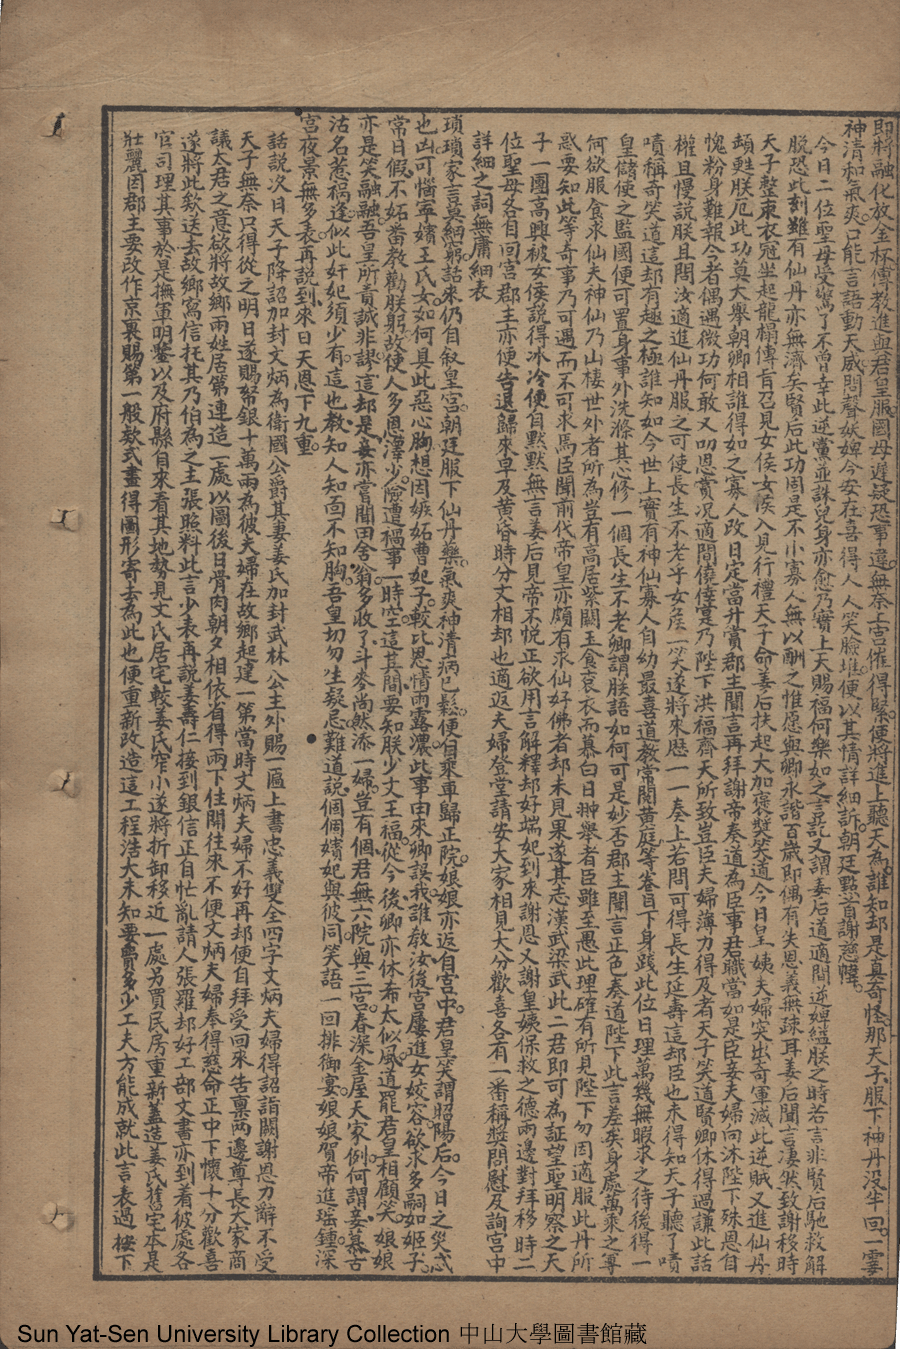 即將融化放金杯傳教進與君皇服國母遲疑恐事違無奈上宮催得緊便將進上聽天為誰知却是真奇怪那天子服下神丹没半回一霎
神清和氣爽口能言語動天威問聲妖婢今安在喜得人人笑臉堆便以其情詳細訴朝廷點首謝慈幃
今日二位聖母受驚了不曾幸此逆黨並誅兒身亦愈乃實上天賜福何樂如之言訖又謂姜后道適間逆婢縊朕之時若言非賢后馳救解
脱恐此刻雖有仙丹亦無濟矣賢后此功固是不小寡人無以酬之惟愿與卿永諧百歲即偶有失恩義無疎耳姜后聞言凄然致謝移時
天子整束衣冠坐起龍榻傳旨召見女侯女侯入見行禮天子命姜后扶起大加褒奬笑道今日皇姨夫婦突出奇軍滅此逆賊又進仙丹
頓甦朕厄此功莫大舉朝卿相誰得如之寡人改日定當升賞郡主聞言再拜謝帝奏道為臣事君職當如是臣妾夫婦向沐陛下殊恩自
愧粉身難報今者偶遇微功何敢又叨恩賞况適間僥倖寔乃陛下洪福齊天所致豈臣夫婦薄力得及者天子笑道賢卿休得過謙此話
權且慢説朕且問汝適進仙丹服之可使長生不老乎女侯一笑遂將來歷一一奏上若問可得長生延壽這却臣也未得知天子聽了嘖
嘖稱奇笑道這却有趣之極誰知如今世上實有神仙寡人自幼最喜道教常閱黄庭等卷自下身踐此位日理萬幾無暇求之待後得一
皇儲使之監國便可置身事外洗滌其心修一個長生不老卿謂朕語如何可是妙否郡主聞言正色奏道陛下此言差矣身處萬乘之尊
何欲服食求仙夫神仙乃山棲世外者所為豈有高居紫闕玉食衮衣而慕白日翀舉者臣雖至愚此理確有所見陛下勿因適服此丹所
惑要知此等奇事乃可遇而不可求焉臣聞前代帝皇亦頗有求仙好佛者却未見果遂其志漢武梁武此二君即可為証望聖明察之天
子一團高興被女侯説得冰冷便自默默無言姜后見帝不悦正欲用言解釋却好端妃到來謝恩又謝皇姨保救之德兩邊對拜移時二
位聖母各自回宮郡主亦便告退歸來早及黄昏時分丈相却也適返夫婦登堂請安大家相見大分歡喜各有一番稱奬問慰及詢宮中
詳細之詞無庸細表
瑣瑣家言莫細窮話來仍自叙皇宮朝廷服下仙丹藥氣爽神清病已鬆便自乘車歸正院娘娘亦返自宮中君皇笑謂昭陽后今日之災惑
也凶可惱寧嬪王氏女如何具此惡心胸想因嫉妬曹妃子較比恩情雨露濃此事由來卿誤我誰教汝後宮屢進女姣容欲求多嗣如姬子
常日假不妬番教勸朕躬故使人多恩澤少險遭禍事一時空這其間要知朕少文王福從今後卿亦休希太似風道罷君皇相顧笑娘娘
亦是笑融融吾皇所責誠非謬這却是妾亦嘗聞田舍翁多收了斗麥尚然添一婦豈有個君無六院與三宮春深金屋天家例何謂妾慕古
沽名惹禍逢似此奸妃須少有這也教知人知面不知胸吾皇切勿生疑忌難道説個個嬪妃與彼同笑語一回排御宴娘娘賀帝進瑶鍾深
宮夜景無多表再説到來日天恩下九重
話説次日天子降詔加封文炳為衛國公爵其妻姜氏加封武林公主外賜一匾上書忠義雙全四字文炳夫婦得詔詣闕謝恩力辭不受
天子無奈只得從之明日遂賜帑銀十萬兩為彼夫婦在故鄉起建一第當時文炳夫婦不好再却便自拜受回來告禀兩邊尊長大家商
議太君之意欲將故鄉兩姓居第連造一處以圖後日骨肉朝夕相依省得兩下住開往來不便文炳夫婦奉得慈命正中下懷十分歡喜
遂將此欵送去故鄉寫信托其乃伯為之主張照料此言少表再説姜壽仁接到銀信正自忙亂請人張羅却好工部文書亦到着彼處各
官司理其事於是撫軍明鑒以及府縣自來看其地勢見文氏居宅較姜氏窄小遂將折卸移近一處另買民房重新蓋造姜氏舊宅本是
壯麗因郡主要改作京裏賜第一般欵式畫得圖形寄去為此也便重新改造這工程浩大未知要費多少工夫方能成就此言表過按下
Sun Yat-Sen University Library Collection 中山大學圖書館藏